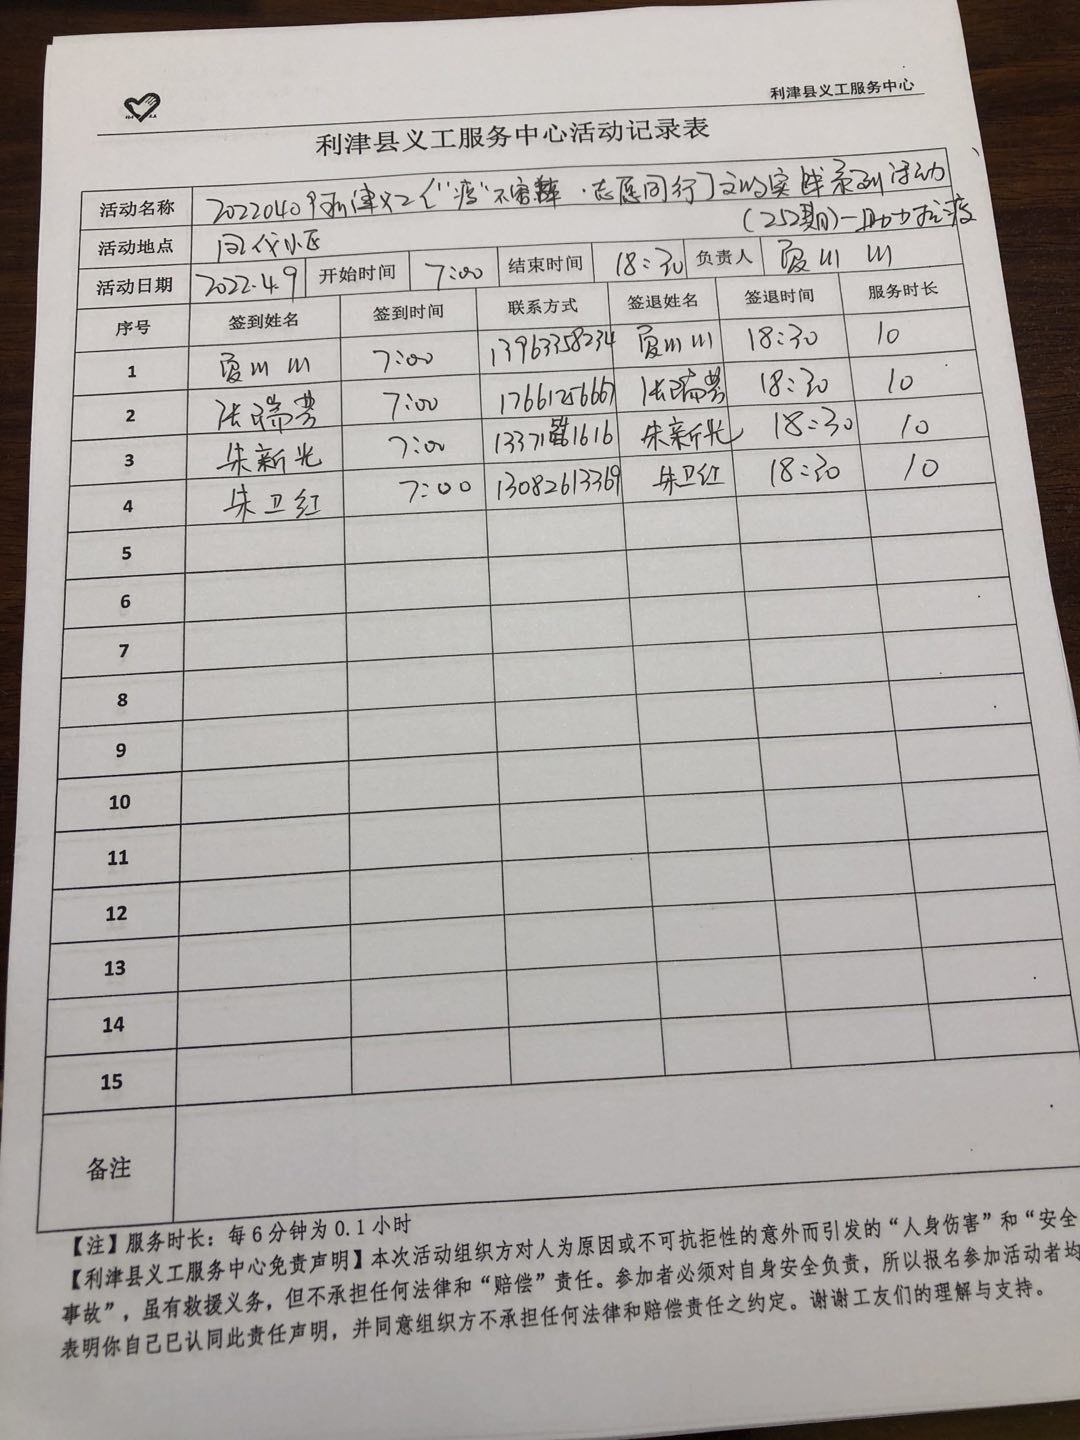 利津县义工服务中心
利津县义工服务中心活动记录表
活动名称 20220409利津义工《“疫”不容辞·志愿同行》文明实践系列活动
(252期)—助力抗疫
活动地点 同代小区
活动日期 2022.4.9 开始时间 7:00 结束时间 18:30 负责人 夏川川
序号 签到姓名 签到时间 联系方式 签退姓名 签退时间 服务时长
1 夏川川 7:00 13963358234 夏川川 18:30 10
2 张瑞芳 7:00 17661256667 张瑞芳 18:30 10
3 朱新光 7:00 13371 1616 朱新光 18:30 10
4 朱卫红 7:00 13082613369 朱卫红 18:30 10
5
6
7
8
9
10
11
12
13
14
15
备注
【注】服务时长：每6分钟为0.1小时
【利津县义工服务中心免责声明】本次活动组织方对人为原因或不可抗拒性的意外而引发的“人身伤害”和“安全
事故”，虽有救援义务，但不承担任何法律和“赔偿”责任。参加者必须对自身安全负责，所以报名参加活动者均
表明你自己已认同此责任声明，并同意组织方不承担任何法律和赔偿责任之约定。谢谢工友们的理解与支持。